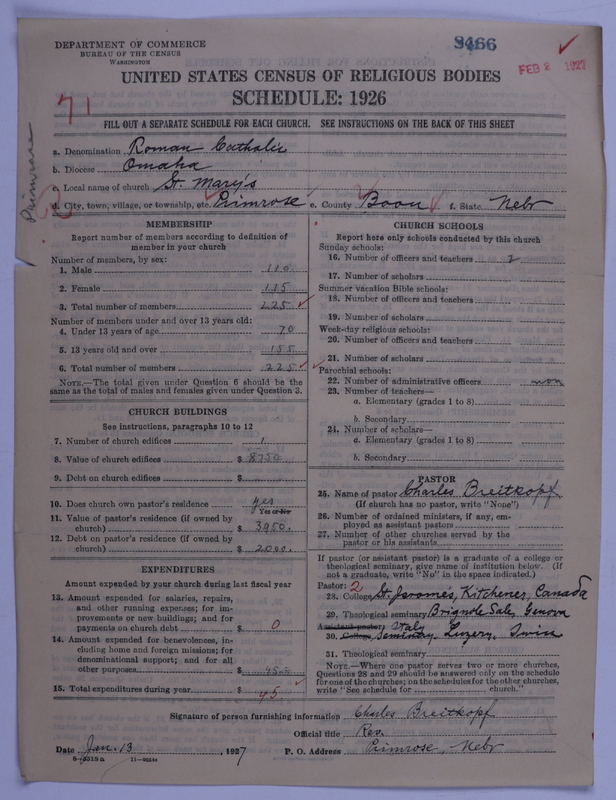 DEPARTMENT OF COMMERCE
BUREAU OF THE CENSUS
WASHINGTON
8466
FEB 2 1927
UNITED STATES CENSUS OF RELIGIOUS BODIES
SCHEDULE: 1926
71
FILL OUT A SEPARATE SCHEDULE FOR EACH CHURCH. SEE INSTRUCTIONS ON THE BACK OF THIS SHEET
Primrose
a. Denomination Roman Catholic
b. Diocese Omaha
c. Local name of church St. Mary's
d. City, town, village, or township, etc. Primrose e. County Boon f. State Nebr
MEMBERSHIP
Report number of members according to definition of
member in your church
Number of members, by sex:
1. Male 110
2. Female 115
3. Total number of members 225
Number of members under and over 13 years old:
4. Under 13 years of age 70
5. 13 years old and over 155
6. Total number of members 225
NOTE.—The total given under Question 6 should be the
same as the total of males and females given under Question 3.
CHURCH BUILDINGS
See instructions, paragraphs 10 to 12
7. Number of church edifices 1
8. Value of church edifices $ 8750
9. Debt on church edifices $
10. Does church own pastor's residence yes
Yes or No
11. Value of pastor's residence (if owned by
church) $ 3950.
12. Debt on pastor's residence (if owned by
church) $ 2000.
EXPENDITURES
Amount expended by your church during last fiscal year
13. Amount expended for salaries, repairs,
and other running expenses; for im-
provements or new buildings; and for
payments on church debt $ 0
14. Amount expended for benevolences, in-
cluding home and foreign missions; for
denominational support; and for all
other purposes $
15. Total expenditures during year $ 45
CHURCH SCHOOLS
Report here only schools conducted by this church
Sunday schools:
16. Number of officers and teachers 2
17. Number of scholars
Summer vacation Bible schools:
18. Number of officers and teachers
19. Number of scholars
Week-day religious schools:
20. Number of officers and teachers
21. Number of scholars
Parochial schools:
22. Number of administrative officers non
23. Number of teachers—
a. Elementary (grades 1 to 8)
b. Secondary
24. Number of scholars—
a. Elementary (grades 1 to 8)
b. Secondary
PASTOR
25. Name of pastor Charles Breitkopf
(If church has no pastor, write "None")
26. Number of ordained ministers, if any, em-
ployed as assistant pastors
27. Number of other churches served by the
pastor or his assistants
If pastor (or assistant pastor) is a graduate of a college or
theological seminary, give name of institution below. (If
not a graduate, write "No" in the space indicated.)
Pastor: 2
28. College St. Jerome's, Kitchener, Canada
29. Theological seminary Brignole Sale, Genova
Assistant pastor: Italy
30. College Seminary, Luzern, Swiss
31. Theological seminary
NOTE.—Where one pastor serves two or more churches,
Questions 28 and 29 should be answered only on the schedule
for one of the churches; on the schedules for the other churches,
write "See schedule for church."
Signature of person furnishing information Charles Breitkopf
Official title Rev.
Date Jan. 13, 1927 P. O. Address Primrose, Nebr
11—9224a